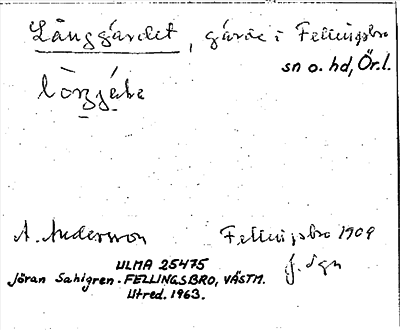 Långgärdet, gärde i Fellingsbro
sn o. hd, Ör.l.
A. Andersson Fellingsbro 1909
ULMA 25475
Jöran Sahlgren. FELLINGSBRO, VÄSTM.
Utred. 1963.